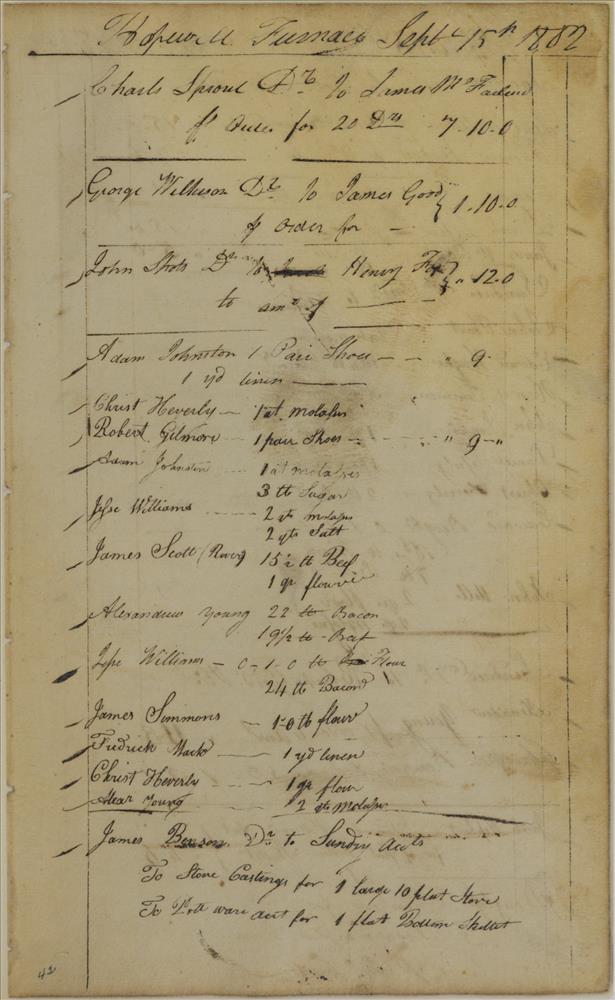 Hopewell Furnace Sept 15th 1802
Charls Sproul Dr to James McFadend
pr Order for 20 Drs 7-10-0
George Wilkison Dr to James Good 1-10-0
pr Order for -
John Shots Dr to Henry Fox " 12.0
to amt of
Adam Johnston 1 Pair Shoes - - " 9-
1 yd linen
Christ Heverly - 1 qt. molases
Robert Gilmore - 1 pair Shoes - " 9-"
Adam Johnston 1 qt molases
3 lb Sugar
Jesse Williams 2 qts molases
2 qts Salt
James Scott (Rover) 15 1/2 lb Beef
1 qr flour
Alexandrew Young 22 lb Bacon
19 1/2 lb - Beef
Jesse Willims - 0-1-0 lb Flour
24 lb Bacond
James Simmons - 1-0 lb flour
Fredrick Mack - 1 yd linen
Christ Heverly - 1 qr flour
Alexr Young 2 qts Molases
James Benson Dr to Sundry acts
To Stove Castings for 1 large 10 plat Stove
To Pott ware acct for 1 flat Bottom Skillet
42